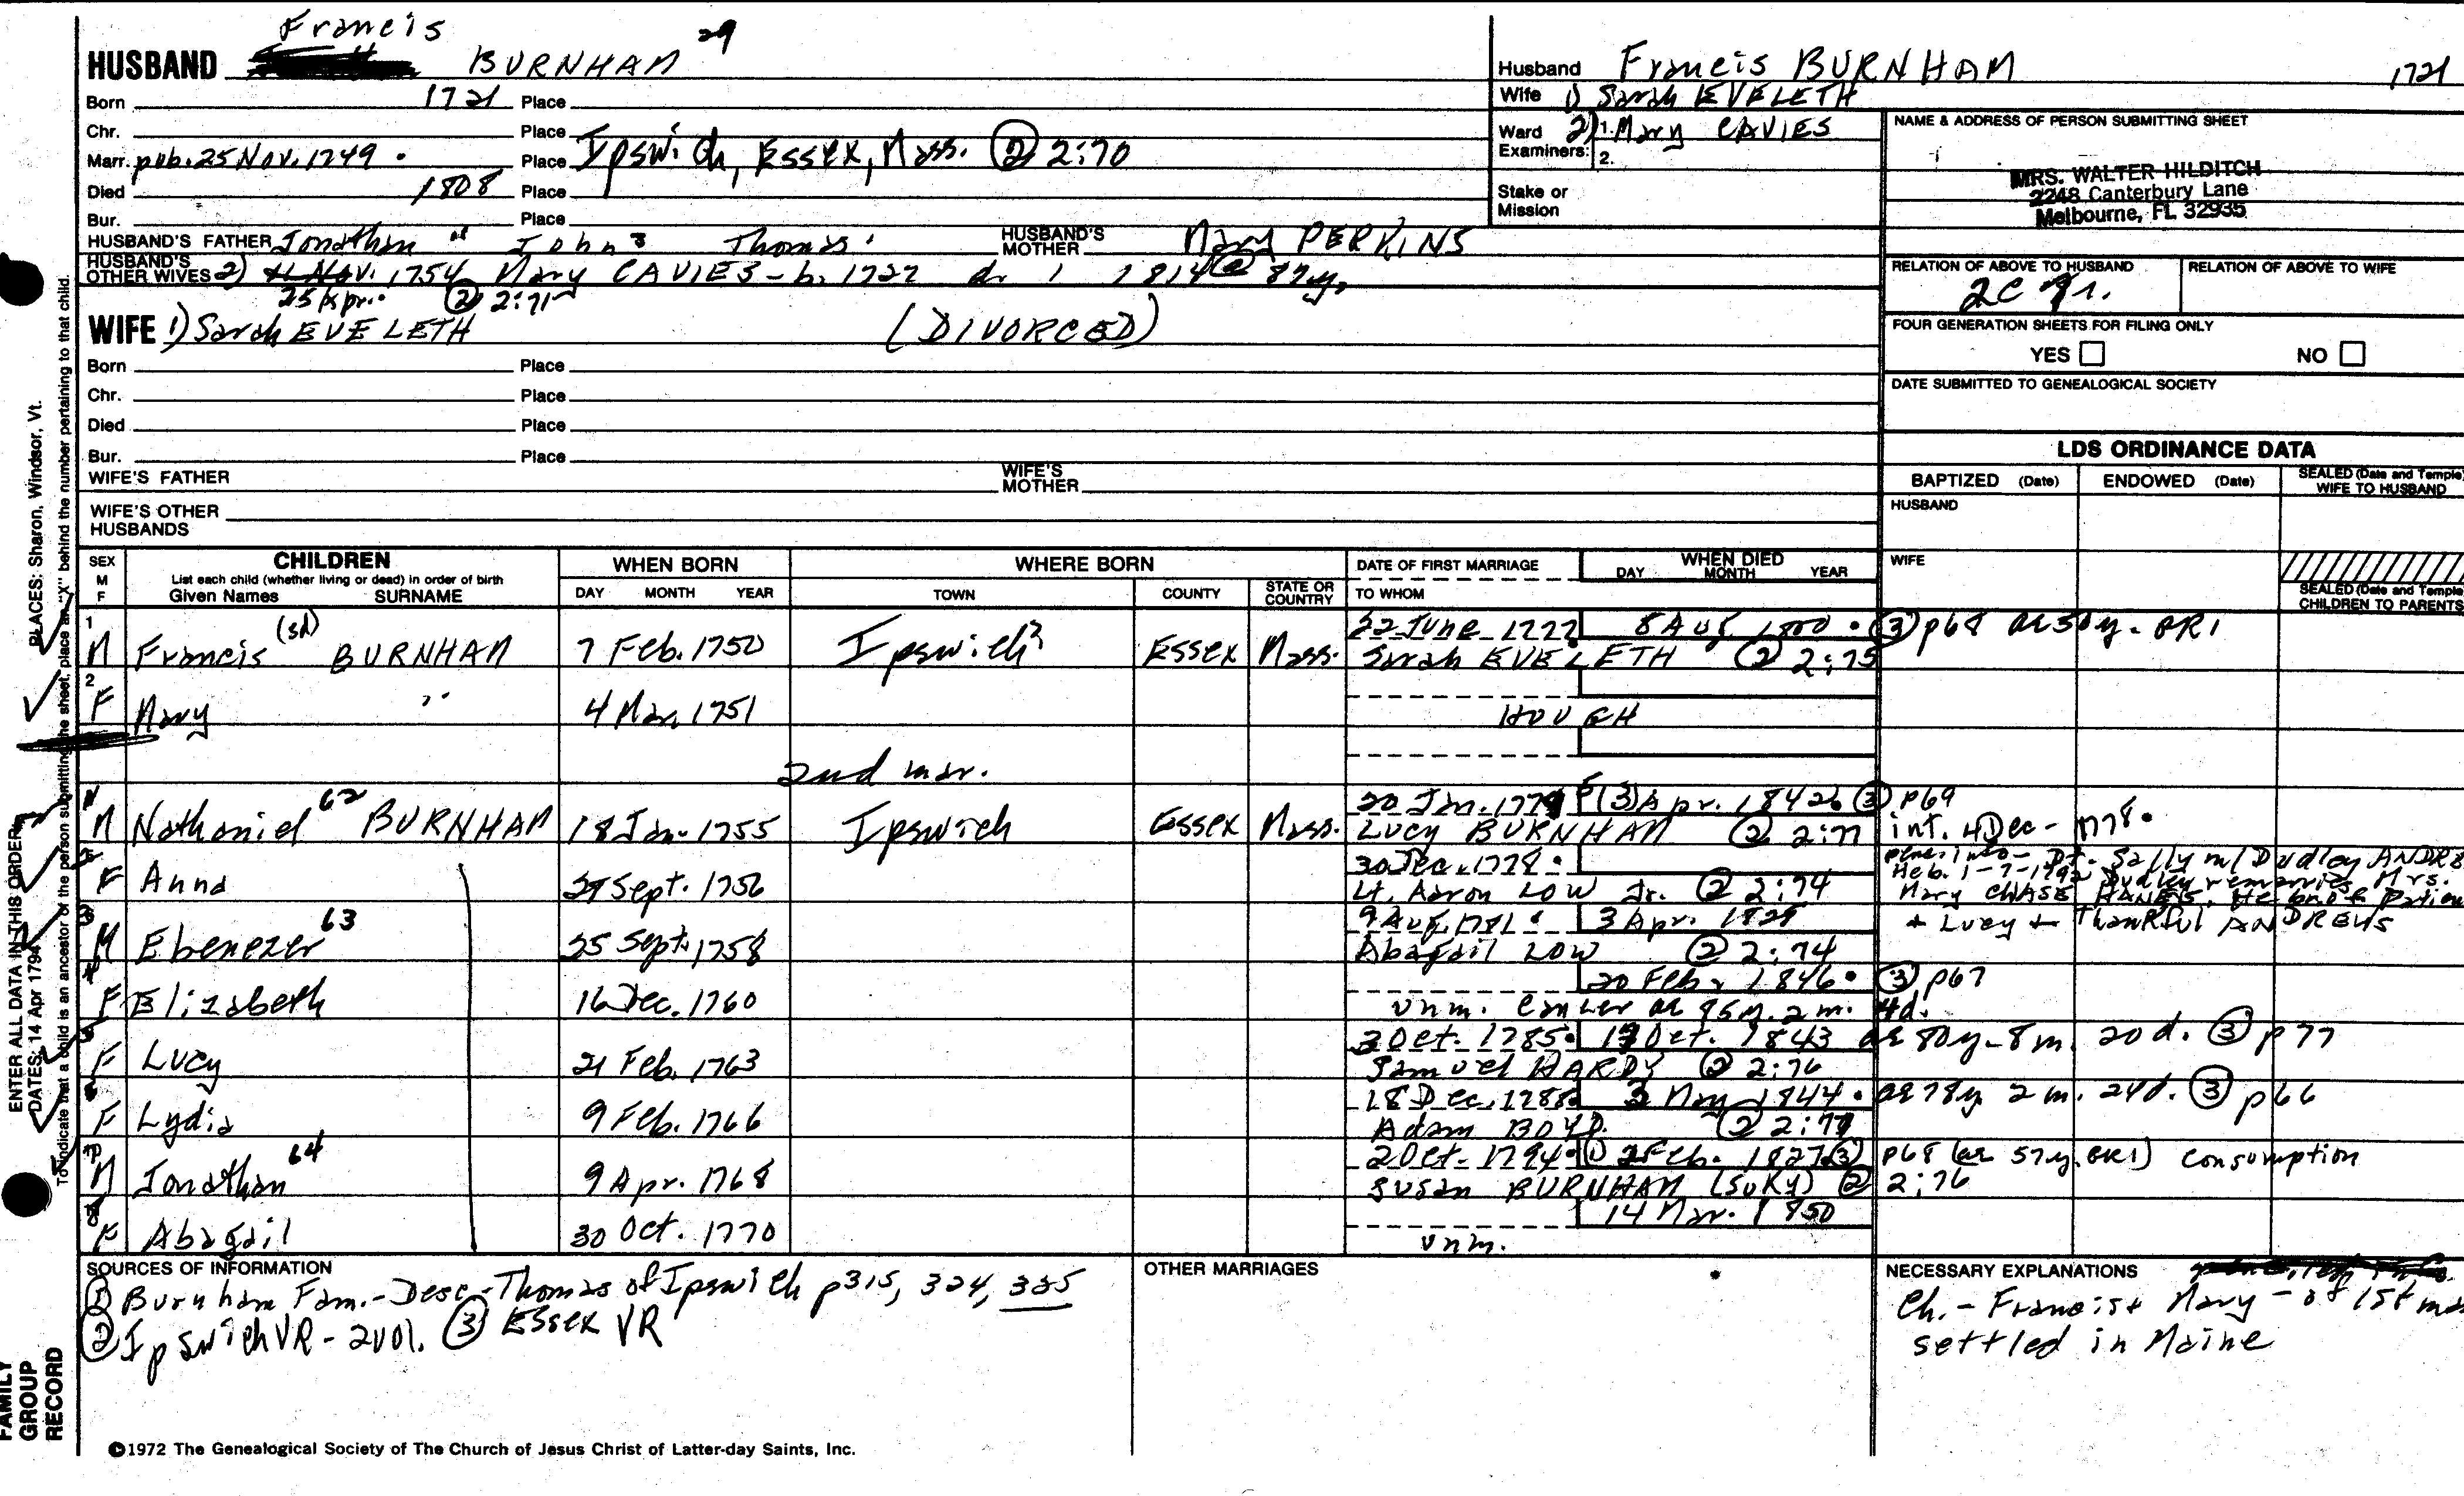 Francis
HUSBAND BURNHAM 29
Born 1721 Place
Chr. Place
Marr. pub. 25 Nov. 1749. Place Ipswich, Essex, Mass. ② 2:70
Died 1808 Place
Bur. Place
HUSBAND'S FATHER Jonathan John 3 Thomas 1 HUSBAND'S MOTHER Mary PERKINS
HUSBAND'S OTHER WIVES 2) 1754 Mary CAVIES - b. 1727 d. 1 1814 @ 87y.
25 Apr. ② 2:71
WIFE 1) Sarah EVELETH (DIVORCED)
Born Place
Chr. Place
Died Place
Bur. Place
WIFE'S FATHER WIFE'S MOTHER
WIFE'S OTHER HUSBANDS
Husband Francis BURNHAM 1721
Wife 1) Sarah EVELETH
Ward Examiners: 2) 1. Mary CAVIES
2.
Stake or Mission
NAME & ADDRESS OF PERSON SUBMITTING SHEET
MRS. WALTER HILDITCH
2248 Canterbury Lane
Melbourne, FL 32935
RELATION OF ABOVE TO HUSBAND RELATION OF ABOVE TO WIFE
FOUR GENERATION SHEETS FOR FILING ONLY
YES NO
DATE SUBMITTED TO GENEALOGICAL SOCIETY
LDS ORDINANCE DATA
BAPTIZED (Date) ENDOWED (Date) SEALED (Date and Temple) WIFE TO HUSBAND
HUSBAND
WIFE
SEALED (Date and Temple) CHILDREN TO PARENTS
SEX M F CHILDREN WHEN BORN WHERE BORN DATE OF FIRST MARRIAGE WHEN DIED
List each child (whether living or dead) in order of birth DAY MONTH YEAR
Given Names SURNAME DAY MONTH YEAR TOWN COUNTY STATE OR COUNTRY TO WHOM
1 22 June 1777 8 Aug 1800. ③ p68 ae 50y. GR1
M Francis (sd) BURNHAM 7 Feb. 1750 Ipswich? Essex Mass. Sarah EVELETH ② 2:75
2
F Mary " 4 Mar. 1751 HOUGH
2nd mar.
20 Jan. 1779 (3) Apr. 1842 ③ p69
M Nathaniel 62 BURNHAM 18 Jan. 1755 Ipswich Essex Mass. Lucy BURNHAM ② 2:77 int. 4 Dec - 1778.
30 Dec. 1778. Sally m/ Dudley
F Anna 29 Sept. 1756 Lt. Aaron LOW Jr. ② 2:74 Mary CHASE
9 Aug. 1781. 3 Apr. 1829 + Lucy + Thankful ANDREWS
M Ebenezer 63 25 Sept. 1758 Abagail LOW ② 2:74
20 Feb. 1846. ③ p67
F Elizabeth 16 Dec. 1760 unm. Cancer ae 85y. 2 m. 4d.
3 Oct. 1785. Oct. 1843 ae 80y - 8 m. 20 d. ③ p77
F Lucy 21 Feb. 1763 Samuel HARDY ② 2:76
18 Dec. 1788 3 May 1844. ae 78y 2 m. 24d. ③ p66
F Lydia 9 Feb. 1766 Adam BOYD ② 2:77
2 Oct. 1794. ① 2 Feb. 1827 ③ p68 (ae 57y. GR1) Consumption
M Jonathan 64 9 Apr. 1768 Susan BURNHAM (SUKY) ② 2:76
14 Mar. 1850
F Abagail 30 Oct. 1770 unm.
SOURCES OF INFORMATION
① Burnham Fam. - Desc - Thomas of Ipswich p315, 324, 335
② Ipswich VR - 2vol. ③ Essex VR
OTHER MARRIAGES
NECESSARY EXPLANATIONS
Ch. - Francis + Mary - of 1st ma
settled in Maine
©1972 The Genealogical Society of The Church of Jesus Christ of Latter-day Saints, Inc.
FAMILY GROUP RECORD
ENTER ALL DATA IN THIS ORDER:
DATES: 14 Apr 1794
PLACES: Sharon, Windsor, Vt.
To indicate that a child is an ancestor of the person submitting the sheet, place an "X" behind the number pertaining to that child.